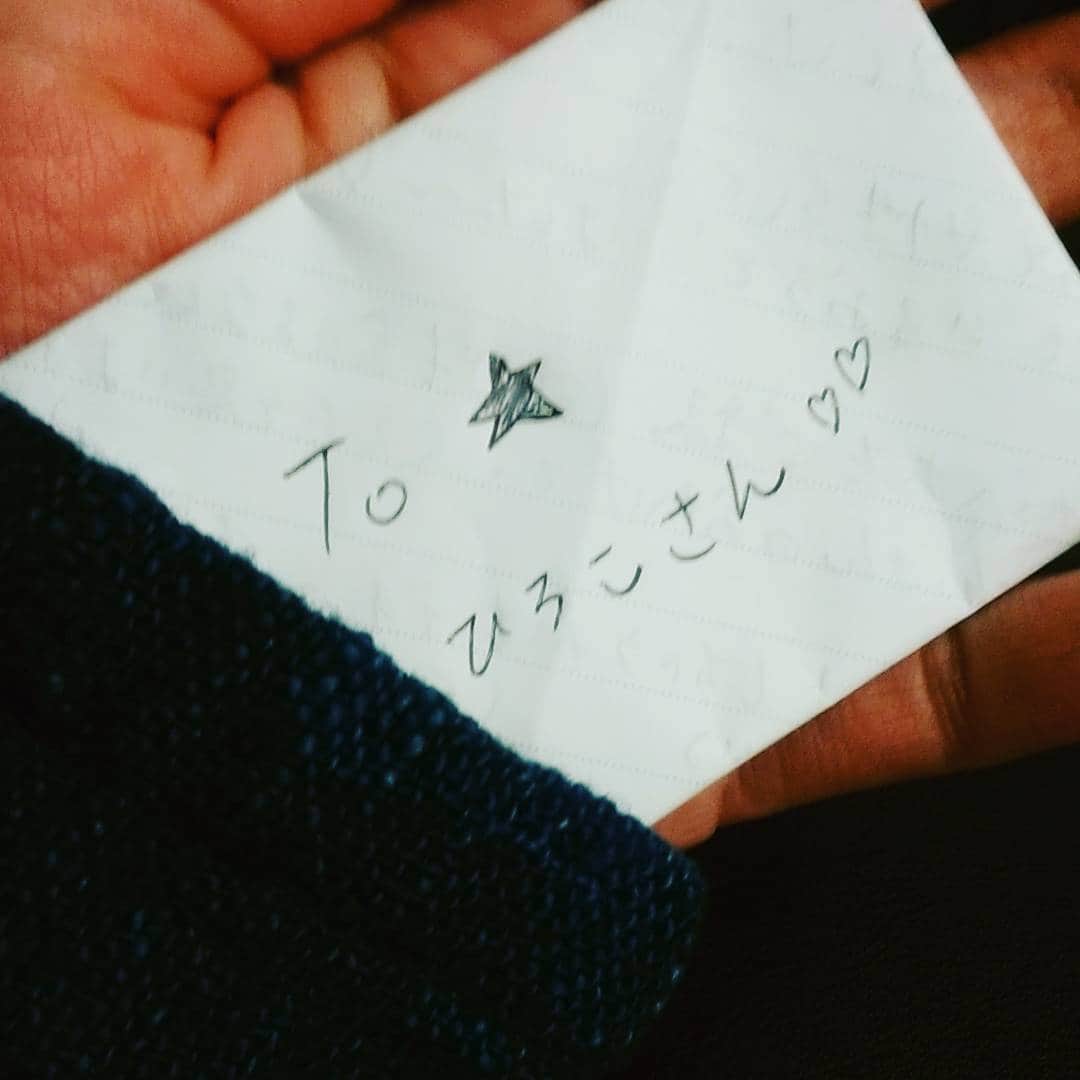 To
ひろこさん♡♡